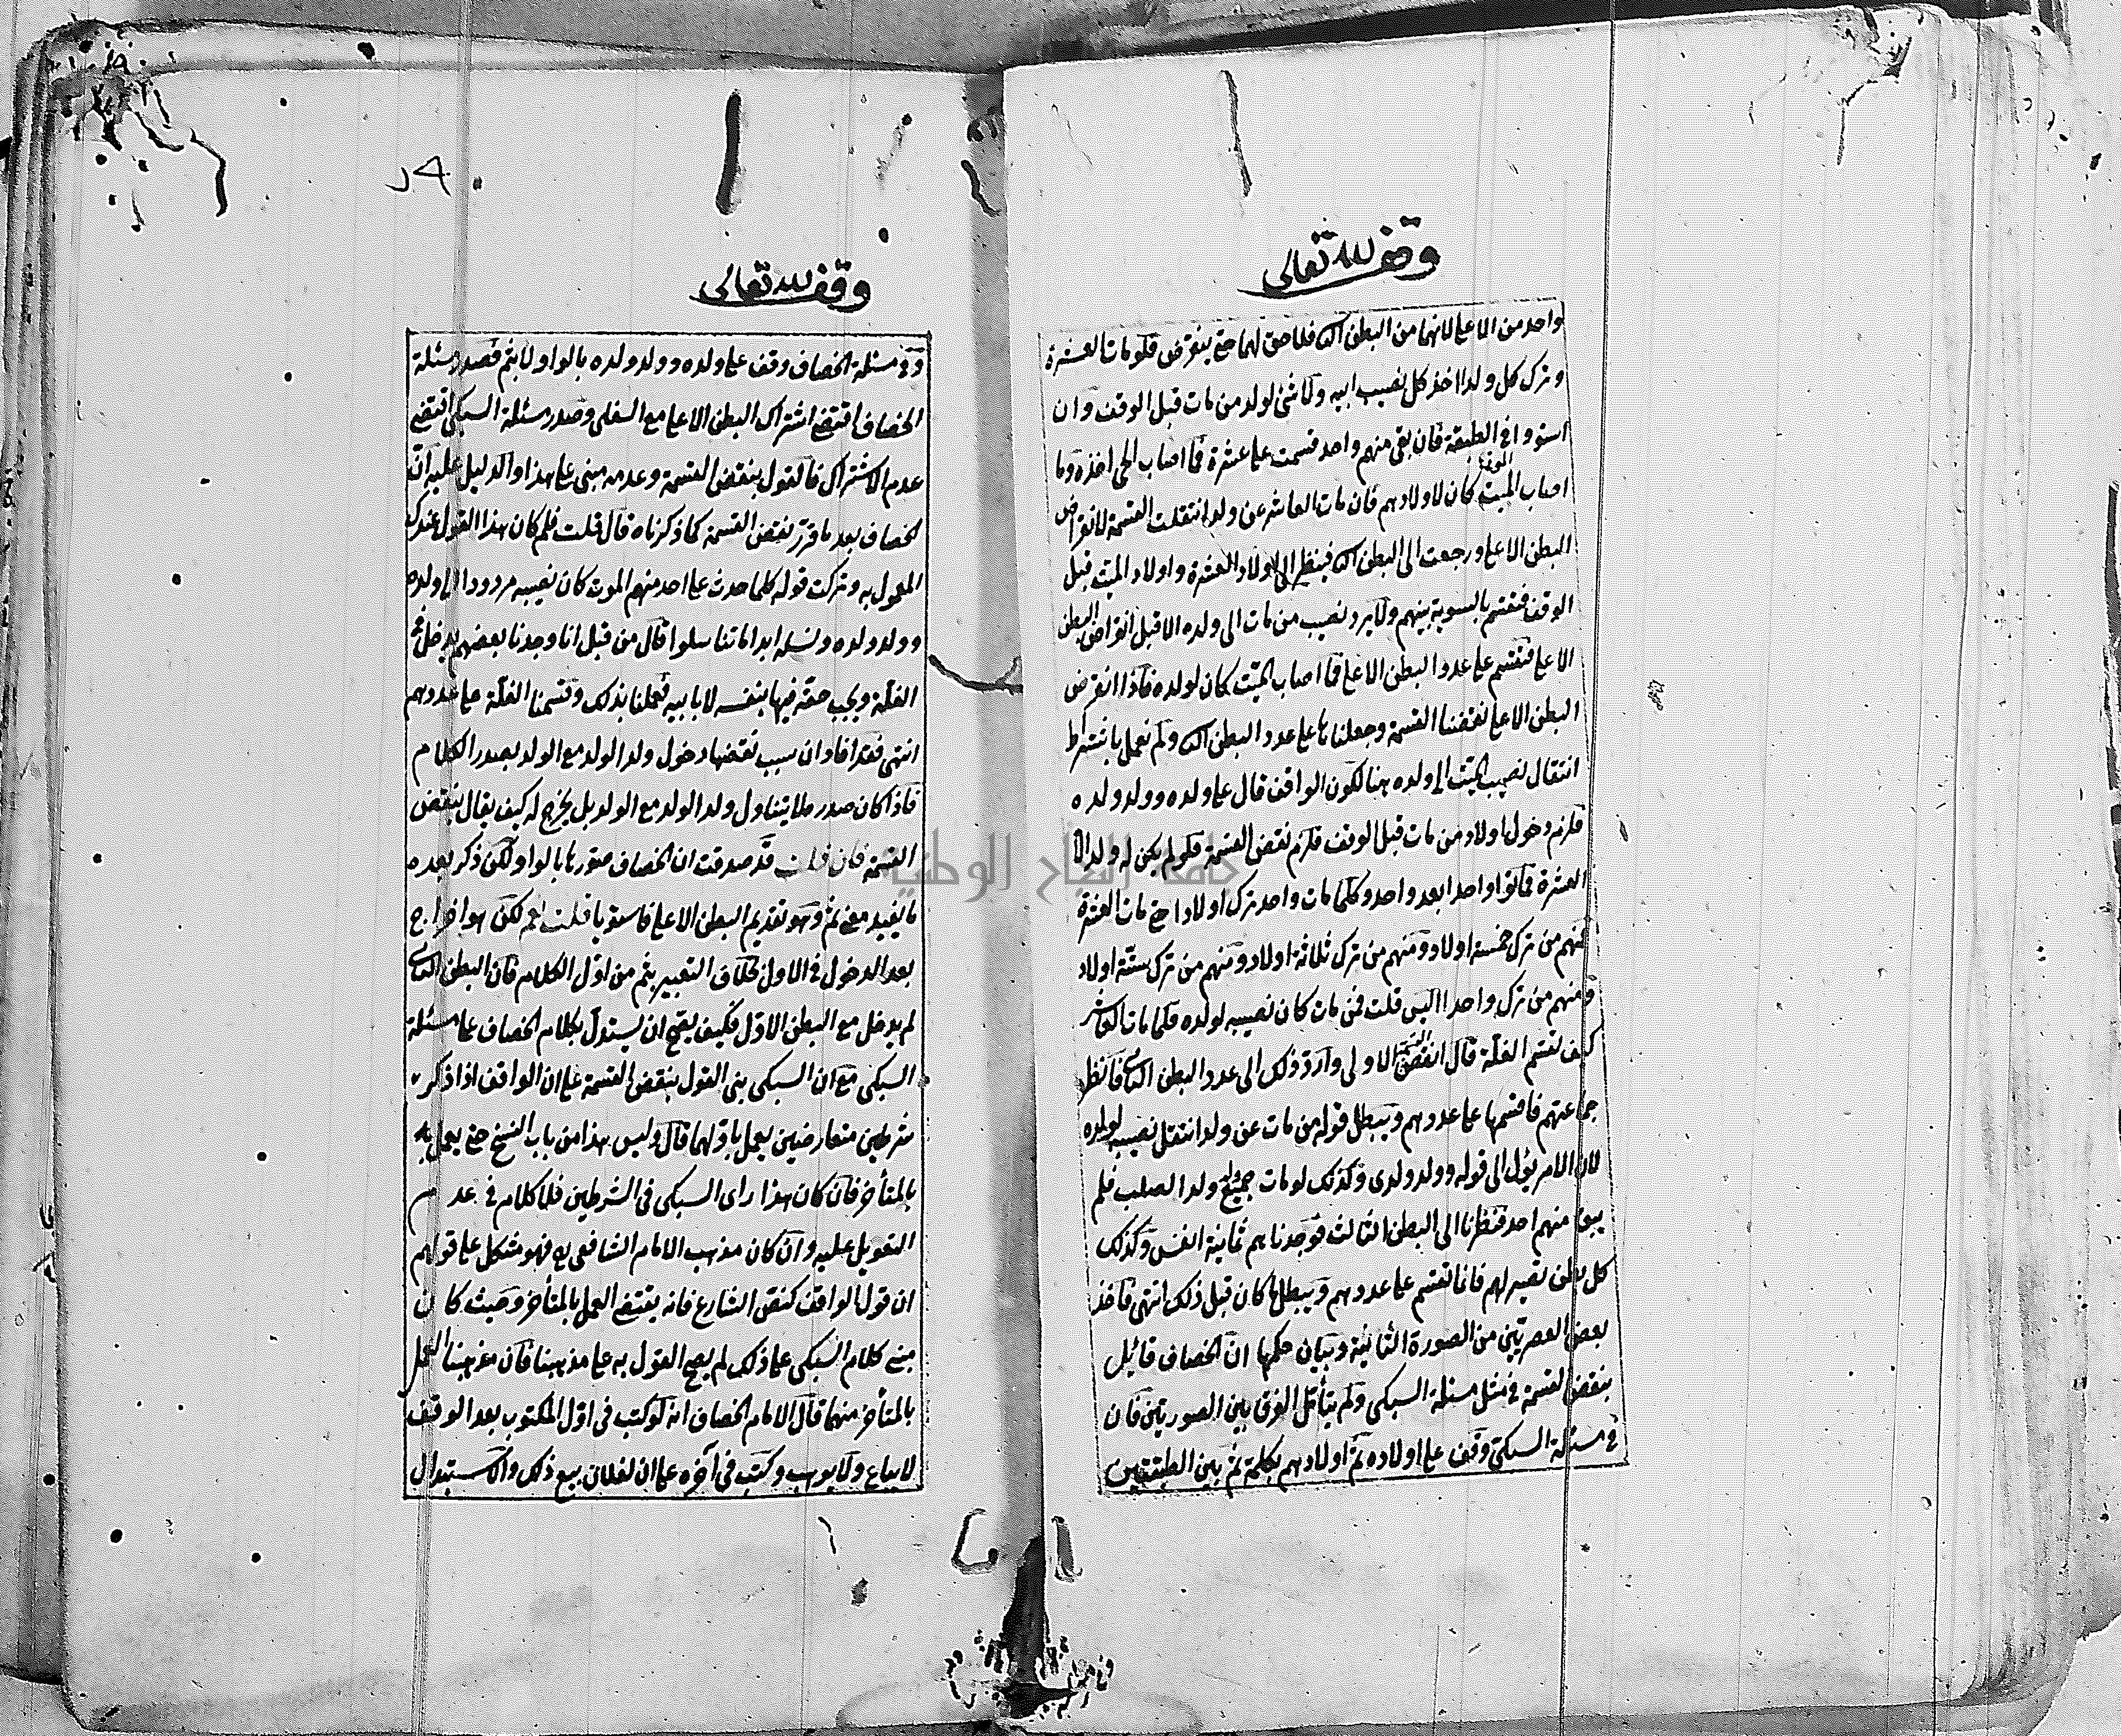 وقف لله تعالى
واحد من الاعلى لانهما من البطن الثا فلا حق لهما حتى ينقرض فلو مات العشرة
وترك كل ولدا اخذ كل نصيب ابيه ولا شئ لولد من مات قبل الوقف وان
استووا في الطبقة فان بقى منهم واحد قسمت على عشرة فما اصاب الحى اخذه وما
اصاب الميت كان لاولادهم فان مات العاشر عن ولد انتقلت القسمة لانقراض
البطن الاعلى ورجعت الى البطن الثا فينظر الى اولاد العشرة واولاد الميت قبل
الوقف فتقسم بالسوية بينهم ولا يرد نصيب من مات الى ولده الا قبل انقراض البطن
الاعلى فتقسم على عدد البطن الاعلى فما اصاب الميت كان لولده فاذا انقرض
البطن الاعلى نقضنا القسمة وجعلناها على عدد البطن الثا ولم نعمل باشتراط
انتقال نصيب الميت الى ولده هنا لكون الواقف قال على ولده وولد ولده
فلزم دخول اولاد من مات قبل الوقف فلزم نقض القسمة فلو لم يكن له ولد الا
العشرة فماتوا واحدا بعد واحد وكلما مات واحد ترك اولادا حتى مات العشرة
فمنهم من ترك خمسة اولاد ومنهم من ترك ثلاثة اولاد ومنهم من ترك ستة اولاد
ومنهم من ترك واحدا اليس قلت فمن مات كان نصيبه لولده فلما مات العاشر
كيف تقسم الغلة قال انقض القسمة الاولى وارد ذلك الى عدد البطن الثانى فانظر
جماعتهم فاقسمها على عددهم ويبطل قوله من مات عن ولد انتقل نصيبه لولده
لان الامر يؤل الى قوله وولد ولدى وكذلك لو مات جميع ولد الصلب فلم
يبق منهم احد فنظرنا الى البطن الثالث فوجدناهم ثمانية انفس وكذلك
كل بطن تصير لهم فانا تقسم على عددهم ويبطل ما كان قبل ذلك انتهى فاخذ
بعض العصريين من الصورة الثانية وبيان حكمها ان الخصاف قائل
بنقض القسمة في مثل مسئلة السبكى ولم يتأمل الفرق بين الصورتين فان
في مسئلة السبكى وقف على اولاده ثم اولادهم بكلمة ثم بين الطبقتين
وقف لله تعالى
وفي مسئلة الخصاف وقف على ولده وولد ولده بالواو لا بثم فصدر مسئلة
الخصاف اقتضى اشتراك البطن الاعلى مع السفلى وصدر مسئلة السبكى اقتضى
عدم الاشتراك فالقول بنقض القسمة وعدمه مبنى على هذا والدليل عليه ان
الخصاف بعد ما قرر نقض القسمة كما ذكرناه قال قلت فلم كان هذا القول عندك
المعمول به وتركت قوله كلما حدث على احد منهم الموت كان نصيبه مردودا الى ولده
وولد ولده ونسله ابدا ما تناسلوا قال من قبل انا وجدنا بعضهم يدخل في
الغلة ويجب حقه فيها بنفسه لا بابيه فعملنا بذلك وقسمنا الغلة على عددهم
انتهى فقد افاد ان سبب نقضها دخول ولد الولد مع الولد بصدر الكلام
فاذا كان صدره لا يتناول ولد الولد مع الولد بل يخرج له كيف يقال بنقض
القسمة فان قلت قد صدقت ان الخصاف صورها بالواو لكن ذكر بعده
ما يفيد معنى ثم وهو تقديم البطن الاعلى فاستويا قلت نعم لكن هو اخراج
بعد الدخول في الاول بخلاف التعبير بثم من اول الكلام فان البطن الثانى
لم يدخل مع البطن الاول فكيف يصح ان يستدل بكلام الخصاف على مسئلة
السبكى مع ان السبكى بنى القول بنقض القسمة على ان الواقف اذا ذكر
شرطين متعارضين يعمل باولهما قال وليس هذا من باب النسخ حتى يعمل به
بالمتأخر فان كان هذا راى السبكى في الشرطين فلا كلام في عدم
التعويل عليه وان كان مذهب الامام الشافعى فهو مشكل على قولهم
ان قول الواقف كنص الشارع فانه يقتضى العمل بالمتأخر وحيث كان
مبنى كلام السبكى على ذلك لم يصح القول به على مذهبنا فان مذهبنا العمل
بالمتأخر منهما قال الامام الخصاف انه لو كتب في اول المكتوب بعد الوقف
لا يباع ولا يوهب وكتب في آخره على ان لفلان بيع ذلك والاستبدال
جامعة النجاح الوطنية